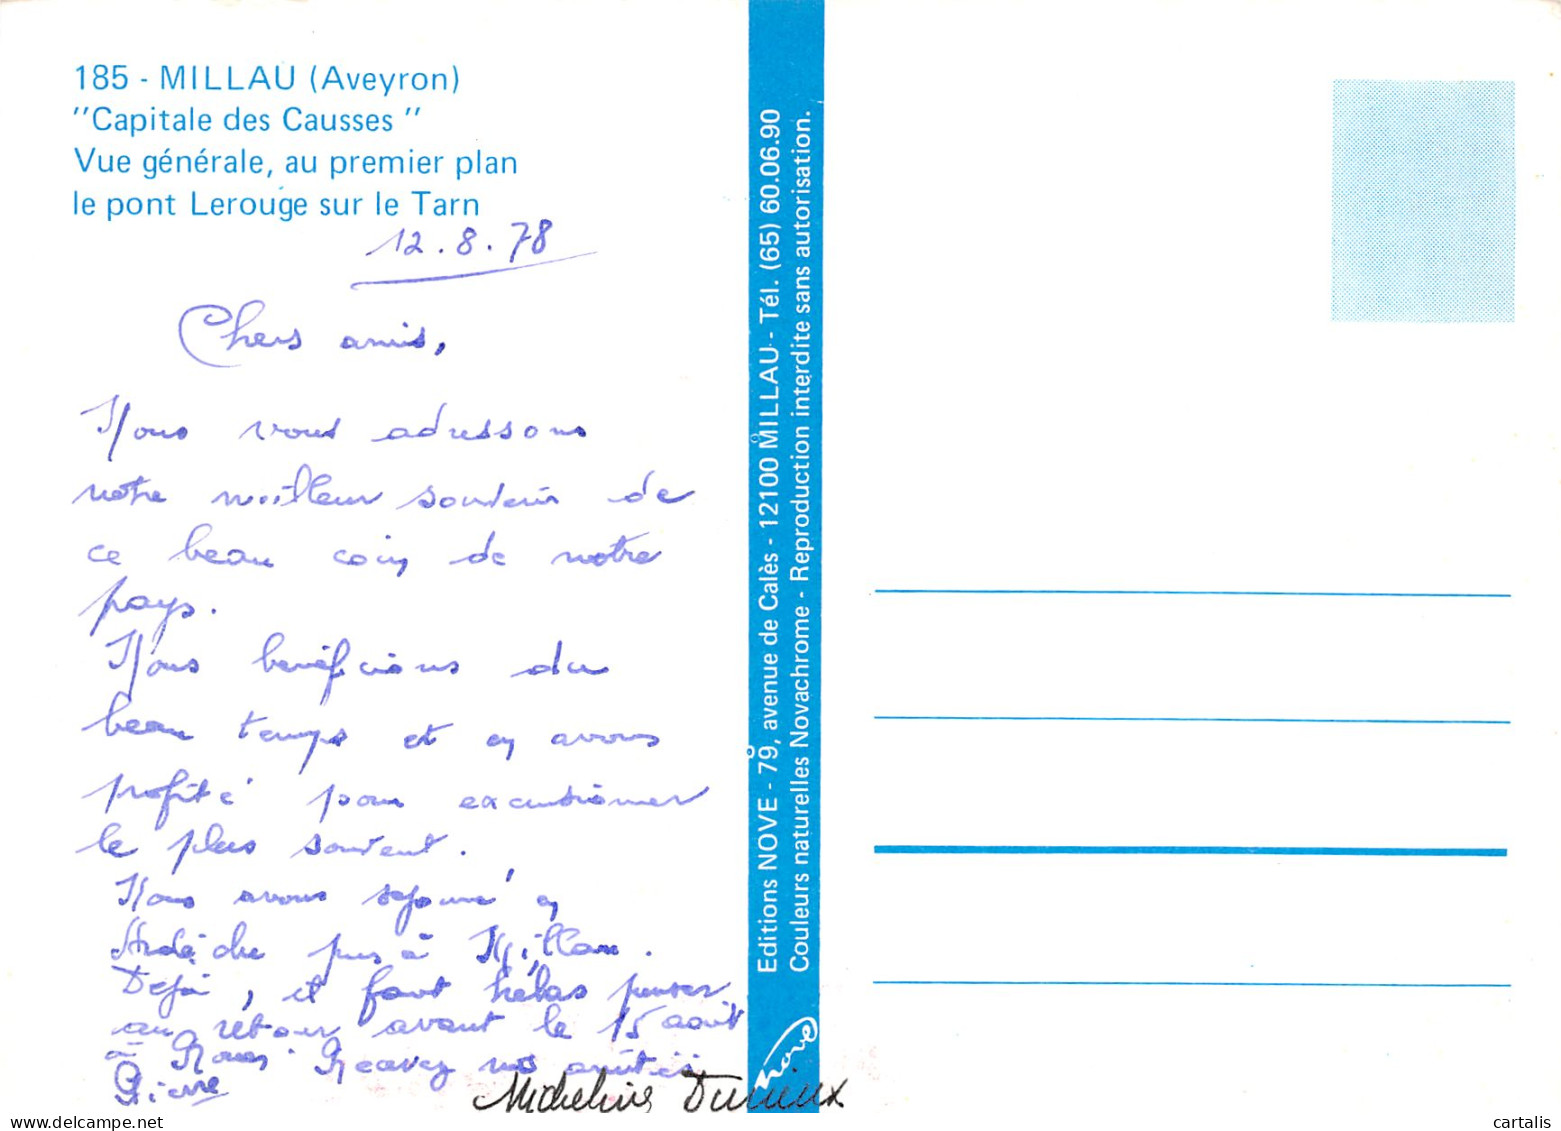 185 - MILLAU (Aveyron)
"Capitale des Causses"
Vue générale, au premier plan
le pont Lerouge sur le Tarn
12.8.78
Chers amis,
Nous vous adressons
notre meilleur souvenir de
ce beau coin de notre
pays.
Nous bénéficions du
beau temps et en avons
profité pour excursionner
le plus souvent.
Nous avons séjourné en
Ardèche puis à Millau.
Déjà, il faut hélas penser
au retour avant le 15 août
à Rouen. Recevez nos amitiés
Pierre
Micheline Durieux
Editions NOVE - 79, avenue de Calès - 12100 MILLAU - Tél. (65) 60.06.90
Couleurs naturelles Novachrome - Reproduction interdite sans autorisation.
nove
cartalis